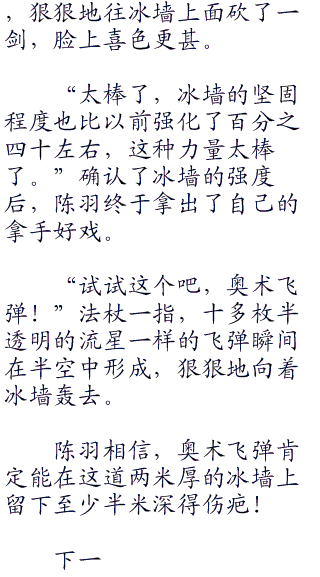 ，狠狠地往冰墙上面砍了一
剑，脸上喜色更甚。
“太棒了，冰墙的坚固
程度也比以前强化了百分之
四十左右，这种力量太棒
了。”确认了冰墙的强度
后，陈羽终于拿出了自己的
拿手好戏。
“试试这个吧，奥术飞
弹！”法杖一指，十多枚半
透明的流星一样的飞弹瞬间
在半空中形成，狠狠地向着
冰墙轰去。
陈羽相信，奥术飞弹肯
定能在这道两米厚的冰墙上
留下至少半米深得伤疤！
下一